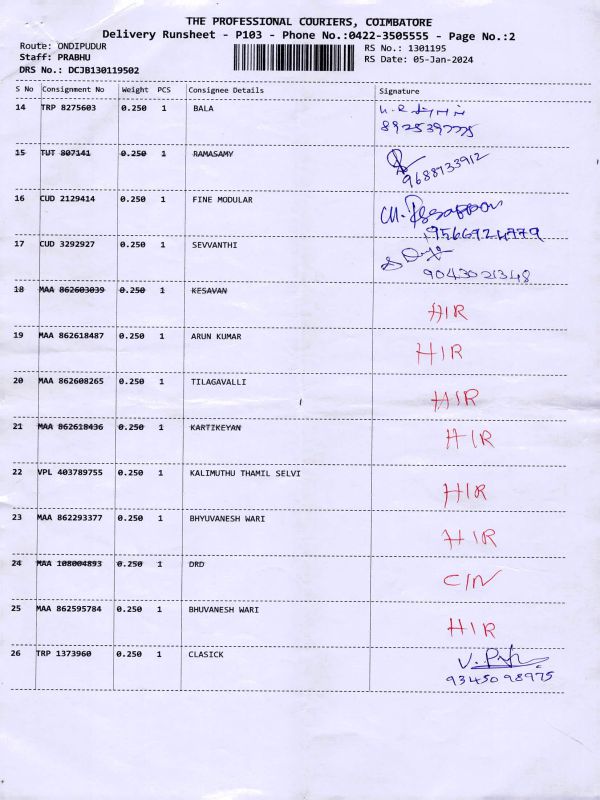 THE PROFESSIONAL COURIERS, COIMBATORE
Delivery Runsheet - P103 - Phone No.:0422-3505555 - Page No.:2
Route: ONDIPUDUR RS No.: 1301195
Staff: PRABHU RS Date: 05-Jan-2024
DRS No.: DCJB130119502
S No Consignment No Weight PCS Consignee Details Signature
14 TRP 8275603 0.250 1 BALA
8925397775
15 TUT 807141 0.250 1 RAMASAMY
9688733912
16 CUD 2129414 0.250 1 FINE MODULAR
9566924979
17 CUD 3292927 0.250 1 SEVVANTHI
9043021348
18 MAA 862603039 0.250 1 KESAVAN HIR
19 MAA 862618487 0.250 1 ARUN KUMAR HIR
20 MAA 862608265 0.250 1 TILAGAVALLI HIR
21 MAA 862618436 0.250 1 KARTIKEYAN HIR
22 VPL 403789755 0.250 1 KALIMUTHU THAMIL SELVI HIR
23 MAA 862293377 0.250 1 BHYUVANESH WARI HIR
24 MAA 108004893 0.250 1 DRD C/N
25 MAA 862595784 0.250 1 BHUVANESH WARI HIR
26 TRP 1373960 0.250 1 CLASICK
9345098975